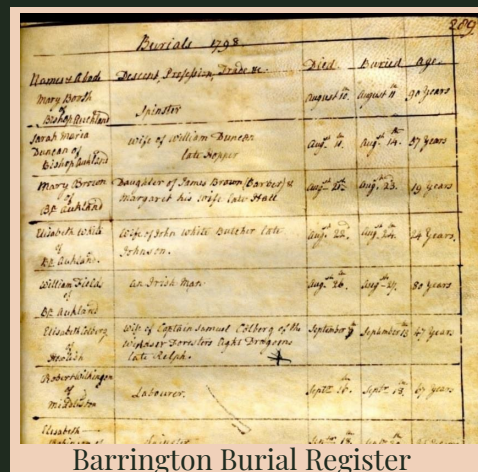 289
Burials 1798.
Names & Abode Descent, Profession, Trade &c. Died. Buried Age.
Mary Booth
of
Bishop Auckland Spinster August 10. August 11 90 Years
Sarah Maria
Duncan of
Bishop Auckland wife of William Duncan
late Hopper Augt. 10. Augt. 14. 37 Years
Mary Brown
of
Bp. Auckland Daughter of James Brown (Barber) &
Margaret his wife late Hall Augt. 21st Augt. 23. 19 Years
Elisabeth White
of
Bp. Auckland. Wife of John White Butcher late
Johnson. Augt. 22. Augt. 24. 24 Years.
William Field
of
Bp. Auckland an Irish Man. Augt. 26. Augt. 27. 80 Years
Elisabeth Colberg
of
wife of Captain Samuel Colberg of the
Windsor Foresters Light Dragoons
late Relph. September September 13 47 Years
Robert Wilkinson
of
Middleston Labourer. Septr. 16. Septr. 18. 67 Years
Elisabeth
of Spinster Septr. 18.
Barrington Burial Register